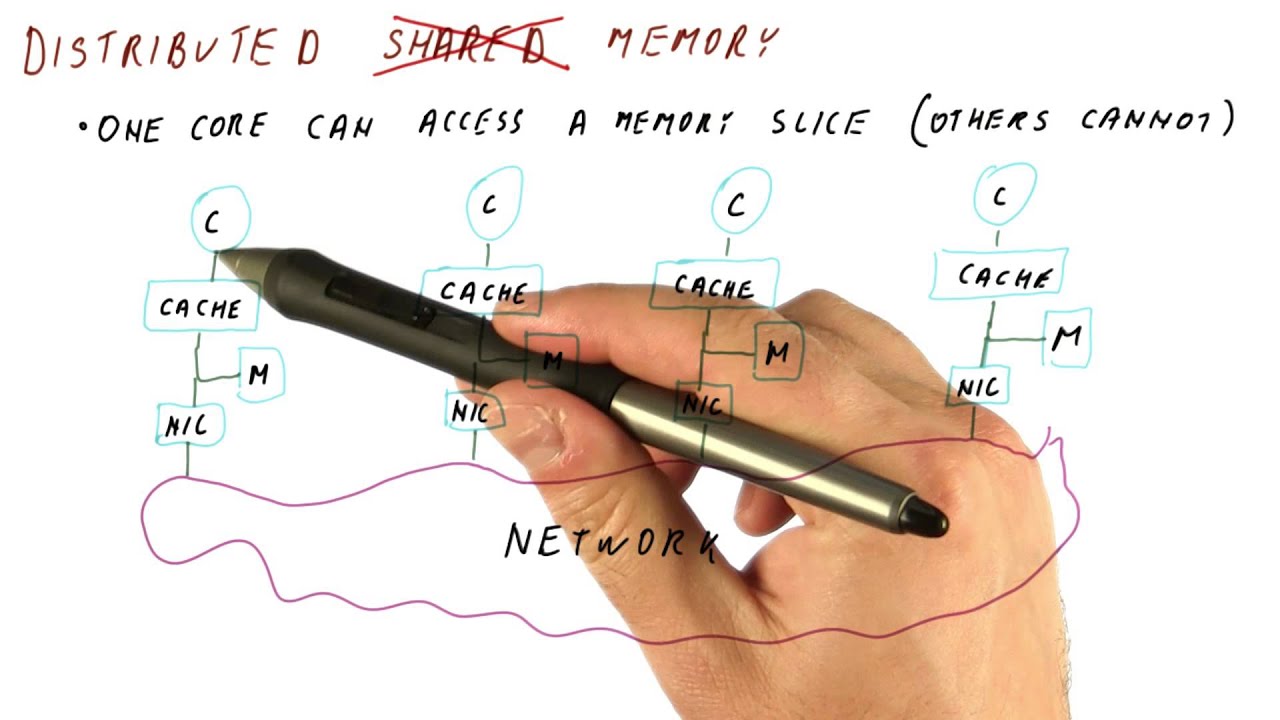 DISTRIBUTED SHARED MEMORY
• ONE CORE CAN ACCESS A MEMORY SLICE (OTHERS CANNOT)
C C C C
CACHE CACHE CACHE CACHE
M M M M
NIC NIC NIC NIC
NETWORK